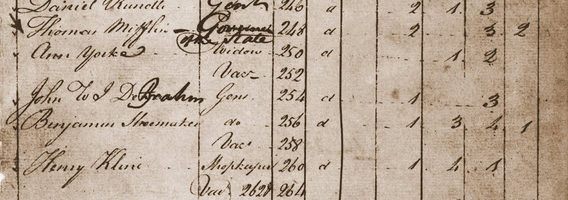 Daniel Rundle Gent 246 a 2 1 3
Thomas Mifflin Governor of the State 248 a 2 3 2
Ann Yorke Widow 250 a 1 2
Vac 252
John W I De Brahm Gens 254 a 1 3
Benjamin Shoemaker do 256 a 1 3 4 1
Vac 258
Henry Kline Shopkeeper 260 a 1 4 1
Vac 262 & 264